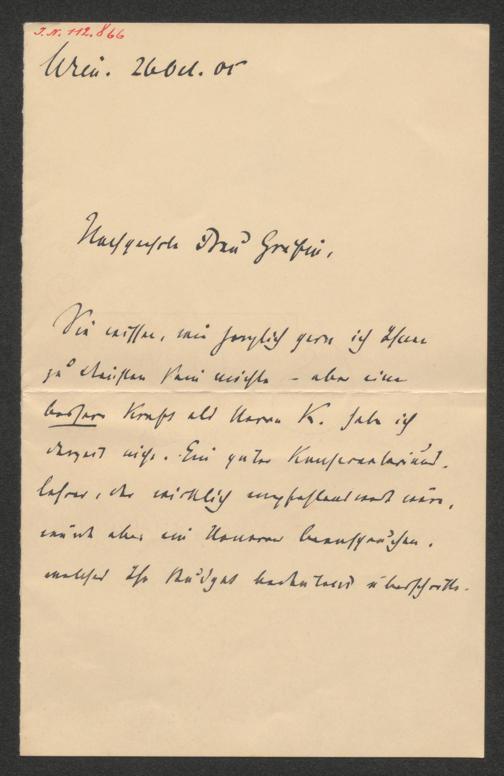 I.N. 112.866
Wien. 26 Oct. 05
Hochgeehrte Frau Gräfin,
Sie wissen, wie herzlich gern ich Ihnen
zu Diensten sein möchte – aber eine
bessere Kraft als Herrn K. habe ich
derzeit nicht. Ein guter Konservatoriums-
lehrer, der wirklich empfehlenswert wäre,
würde aber ein Honorar beanspruchen,
welches Ihr Budget bedeutend überschritte.